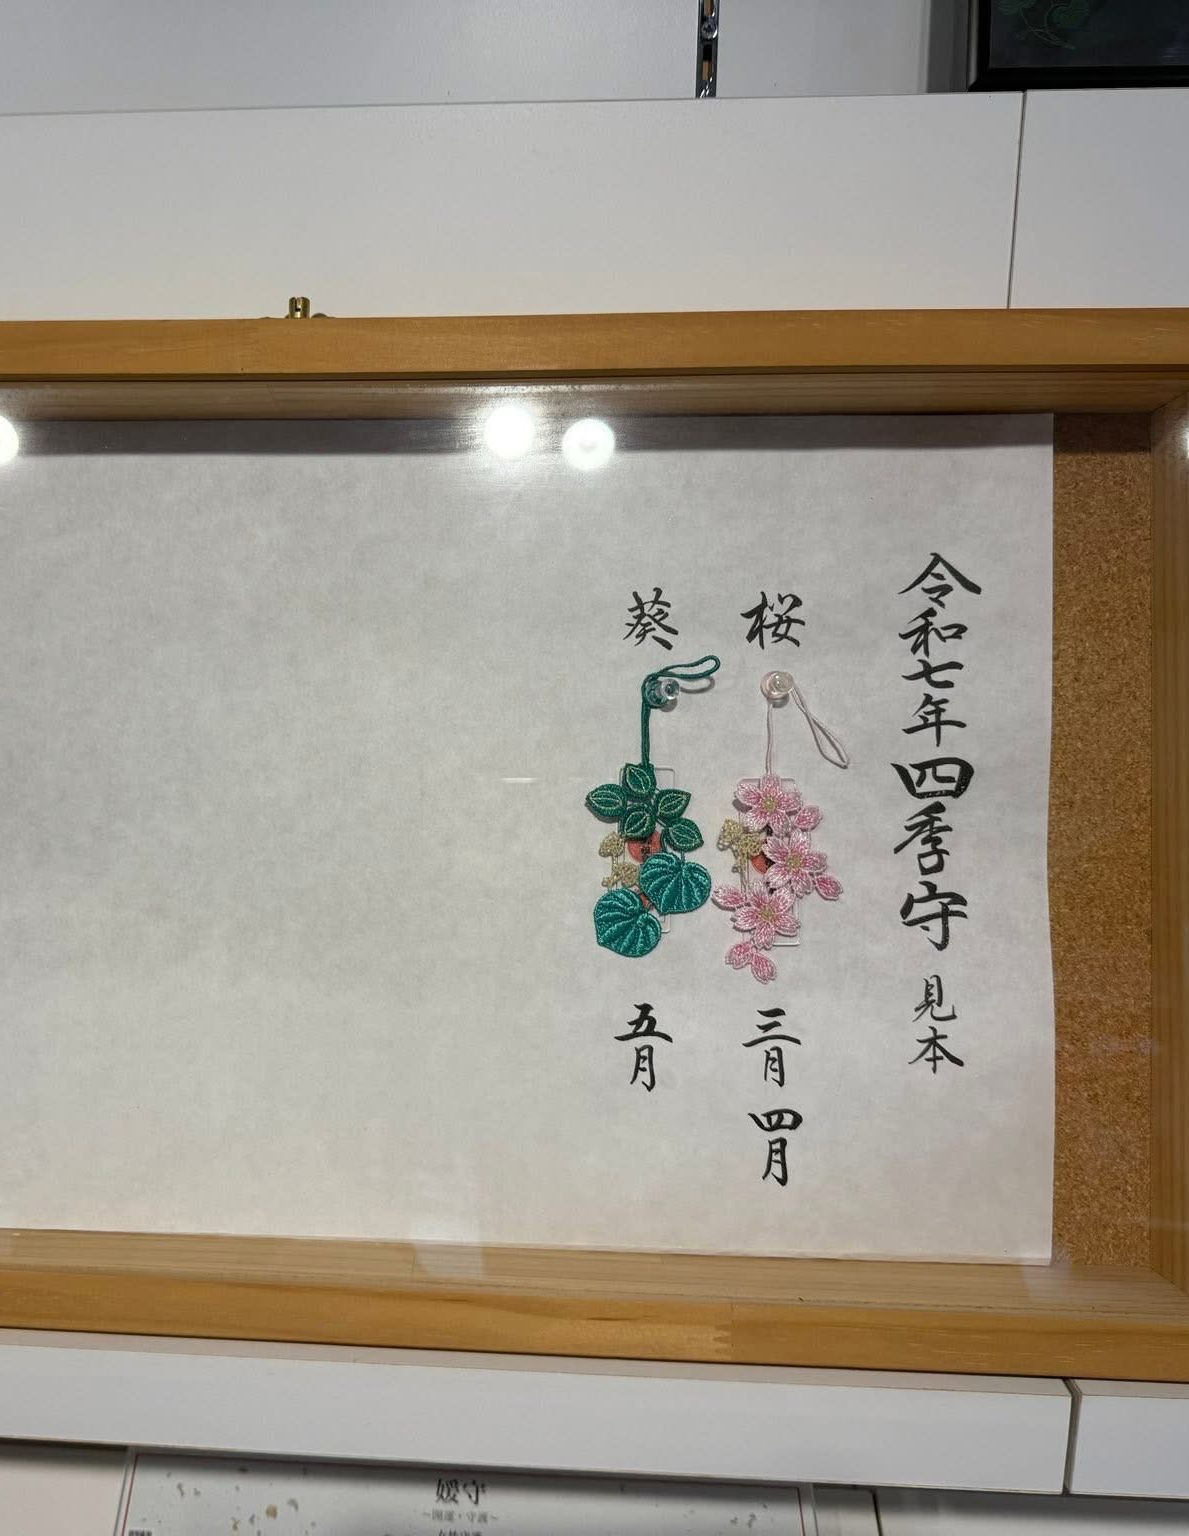 令和七年四季守 見本
桜
三月 四月
葵
五月
媛守
～開運・守護～